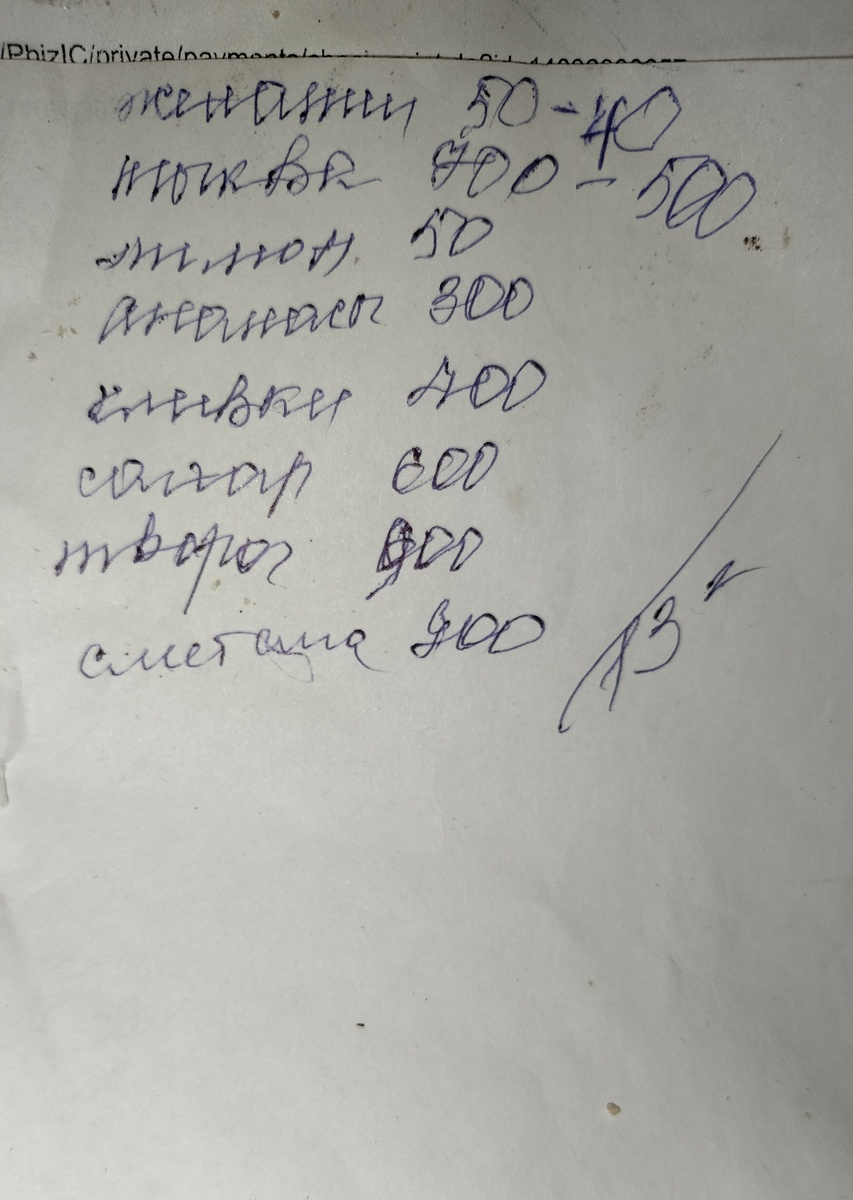 /PhizIC/private/payments/
желатин 50 - 40
тыква 700 - 500
лимон 50
Ананасы 300
сливки 400
сахар 600
творог 900
сметана 900
13